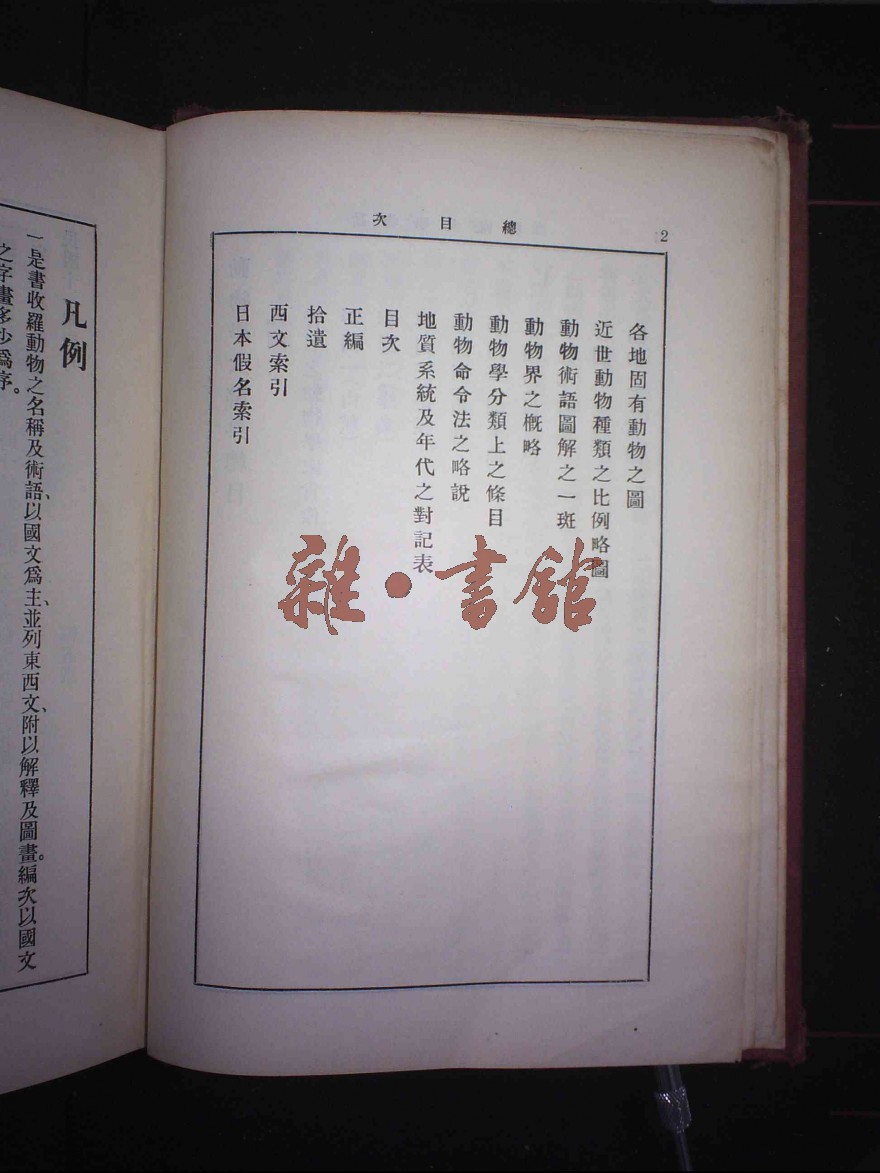 總目次
2
各地固有動物之圖
近世動物種類之比例略圖
動物術語圖解之一斑
動物界之概略
動物學分類上之條目
動物命令法之略說
地質系統及年代之對記表
目次
正編
拾遺
西文索引
日本假名索引
凡例
一是書收羅動物之名稱及術語、以國文爲主、並列東西文、附以解釋及圖畫。編次以國文
之字畫多少爲序。
雜·書館